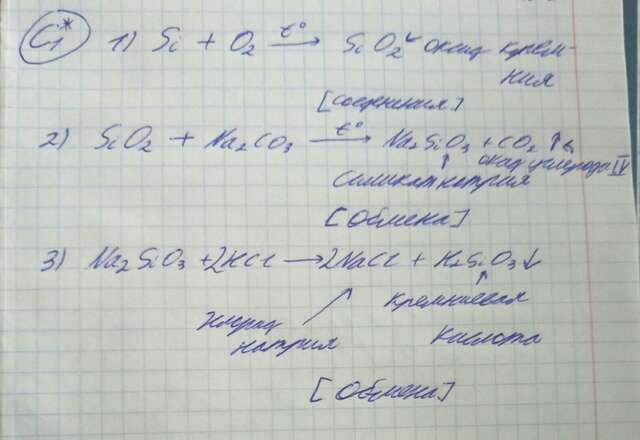 C1* 1) Si + O2 t° → SiO2 оксид крем-
ния
[соединения]
2) SiO2 + Na2CO3 t° → Na2SiO3 + CO2 ↑
оксид углерода IV
силикат натрия
[Обмена]
3) Na2SiO3 + 2HCl → 2NaCl + H2SiO3↓
хлорид
натрия
кремниевая
кислота
[Обмена]